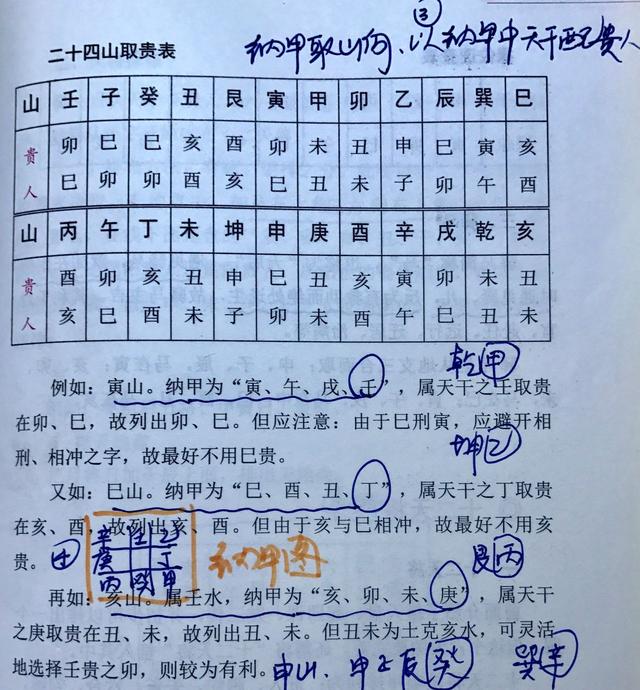 ③
纳甲取山向、以纳甲中天干配贵人
二十四山取贵表
山 壬 子 癸 丑 艮 寅 甲 卯 乙 辰 巽 巳
贵 卯 巳 巳 亥 酉 卯 未 丑 申 巳 寅 亥
人 巳 卯 卯 酉 亥 巳 丑 未 子 卯 午 酉
山 丙 午 丁 未 坤 申 庚 酉 辛 戌 乾 亥
贵 酉 卯 亥 丑 申 巳 丑 亥 寅 卯 未 丑
人 亥 巳 酉 未 子 卯 未 酉 午 巳 丑 未
乾甲
例如：寅山。纳甲为“寅、午、戌、壬”，属天干之壬取贵
在卯、巳，故列出卯、巳。但应注意：由于巳刑寅，应避开相
刑、相冲之字，故最好不用巳贵。
坤乙
又如：巳山。纳甲为“巳、酉、丑、丁”，属天干之丁取贵
在亥、酉，故列出亥、酉。但由于亥与巳相冲，故最好不用亥
贵。
④
辛 壬 乙
庚 丁
丙 癸 甲
纳甲图
艮丙
再如：亥山。属壬水，纳甲为“亥、卯、未、庚”，属天干
之庚取贵在丑、未，故列出丑、未。但丑未为土克亥水，可灵活
地选择壬贵之卯，则较为有利。
申山、申子辰癸
巽辛